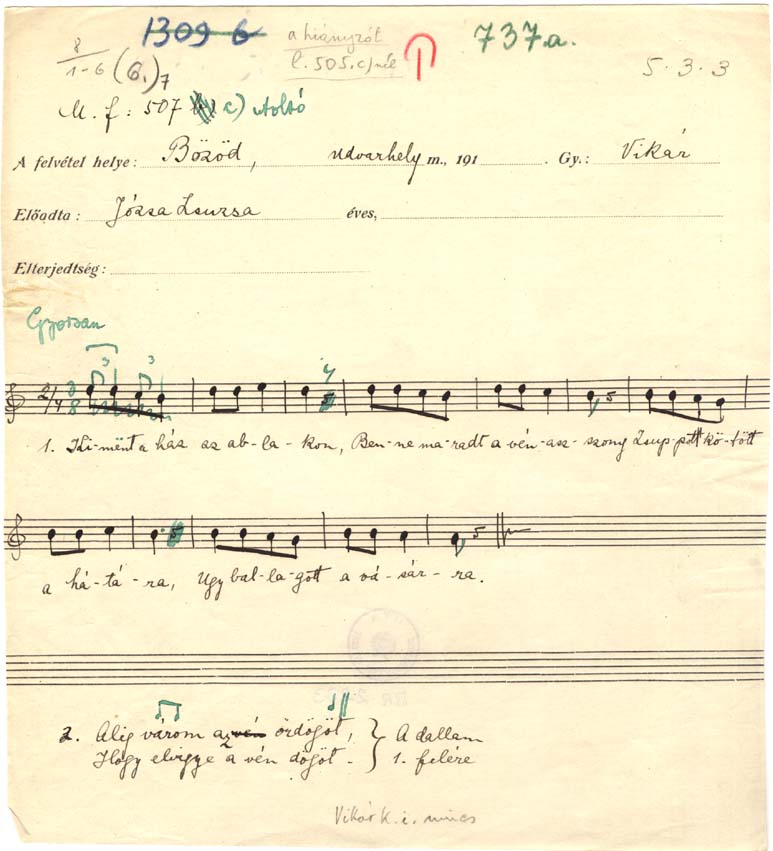 1309 b
a hiányzót
l. 505. c) nél
737a.
5 . 3 . 3
8
1-6 (6.)7
M. f : 507 c) utolsó
A felvétel helye : Bözöd, Udvarhely m., 191 . Gy.: Vikár
Előadta : Józsa Zsuzsa éves,
Elterjedtség :
Gyorsan
3 3
2/4 3 8
1. Ki-mënt a ház az ab-la-kon, Ben-ne ma-radt a vén-asz-szony Zsup-pott kö-tött
a há-tá-ra, Ugy bal-la-gott a vá-sár-ra.
2. Alig várom az vén ördögöt,
Hogy elvigye a vén dögöt.
A dallam
1. felére
Vikár K. i. nincs